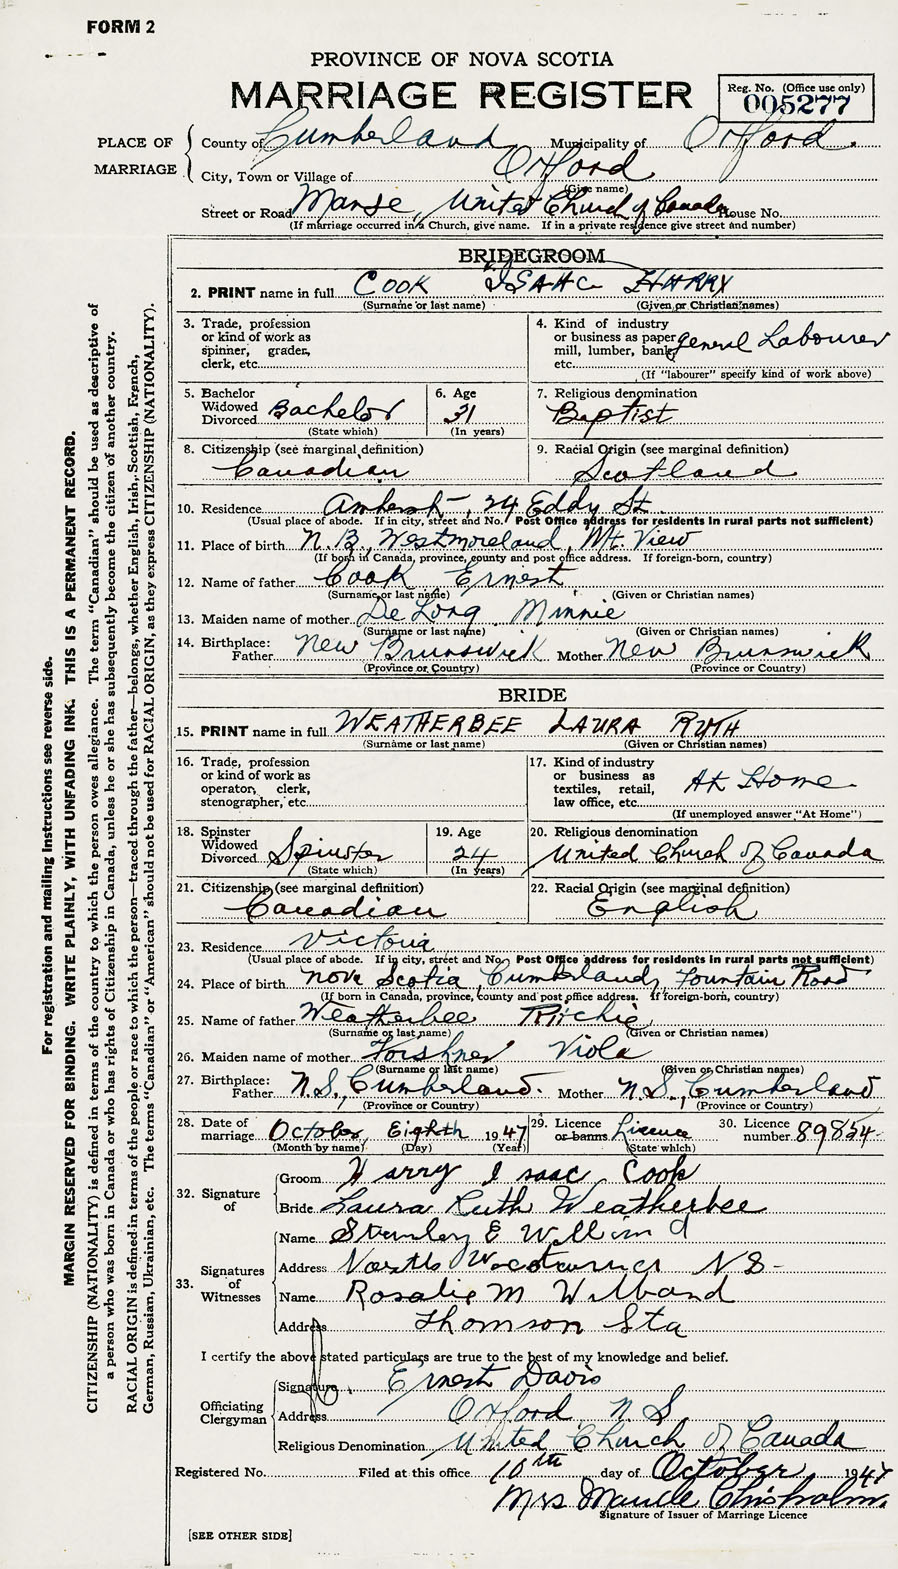 FORM 2
PROVINCE OF NOVA SCOTIA
MARRIAGE REGISTER
Reg. No. (Office use only)
005277
PLACE OF MARRIAGE
County of Cumberland Municipality of Oxford.
City, Town or Village of Oxford
(Give name)
Street or Road Manse, United Church of Canada House No.
(If marriage occurred in a Church, give name. If in a private residence give street and number)
BRIDEGROOM
2. PRINT name in full COOK ISAAC HARRY
(Surname or last name) (Given or Christian names)
3. Trade, profession or kind of work as spinner, grader, clerk, etc.
4. Kind of industry or business as paper mill, lumber, bank, etc. general Labourer
(If "labourer" specify kind of work above)
5. Bachelor Widowed Divorced Bachelor
(State which)
6. Age 31
(In years)
7. Religious denomination
Baptist
8. Citizenship (see marginal definition)
Canadian
9. Racial Origin (see marginal definition)
Scotland
10. Residence Amherst, 24 Eddy St.
(Usual place of abode. If in city, street and No. Post Office address for residents in rural parts not sufficient)
11. Place of birth N.B., Westmoreland, Mt. View
(If born in Canada, province, county and post office address. If foreign-born, country)
12. Name of father Cook Ernest
(Surname or last name) (Given or Christian names)
13. Maiden name of mother De Long Minnie
(Surname or last name) (Given or Christian names)
14. Birthplace: Father New Brunswick Mother New Brunswick
(Province or Country) (Province or Country)
BRIDE
15. PRINT name in full WEATHERBEE LAURA RUTH
(Surname or last name) (Given or Christian names)
16. Trade, profession or kind of work as operator, clerk, stenographer, etc.
17. Kind of industry or business as textiles, retail, law office, etc. At Home
(If unemployed answer "At Home")
18. Spinster Widowed Divorced Spinster
(State which)
19. Age 24
(In years)
20. Religious denomination
United Church of Canada
21. Citizenship (see marginal definition)
Canadian
22. Racial Origin (see marginal definition)
English
23. Residence Victoria
(Usual place of abode. If in city, street and No. Post Office address for residents in rural parts not sufficient)
24. Place of birth Nova Scotia, Cumberland, Fountain Road
(If born in Canada, province, county and post office address. If foreign-born, country)
25. Name of father Weatherbee Ritchie
(Surname or last name) (Given or Christian names)
26. Maiden name of mother Viola
(Surname or last name) (Given or Christian names)
27. Birthplace: Father N.S., Cumberland. Mother N.S., Cumberland
(Province or Country) (Province or Country)
28. Date of marriage October, Eighth 1947
(Month by name) (Day) (Year)
29. Licence or banns Licence
(State which)
30. Licence number 89854
32. Signature of
Groom Harry Isaac Cook
Bride Laura Ruth Weatherbee
33. Signatures of Witnesses
Name E
Address North N S
Name Rosalie M Wilband
Address Thomson Sta
I certify the above stated particulars are true to the best of my knowledge and belief.
Officiating Clergyman
Signature Ernest Davis
Address Oxford N.S.
Religious Denomination United Church of Canada
Registered No. Filed at this office 10th day of October 1947
Mrs Maude Chisholm
Signature of Issuer of Marriage Licence
[SEE OTHER SIDE]
For registration and mailing instructions see reverse side.
MARGIN RESERVED FOR BINDING. WRITE PLAINLY, WITH UNFADING INK. THIS IS A PERMANENT RECORD.
CITIZENSHIP (NATIONALITY) is defined in terms of the country to which the person owes allegiance. The term "Canadian" should be used as descriptive of
a person who was born in Canada or who has rights of Citizenship in Canada, unless he or she has subsequently become the citizen of another country.
RACIAL ORIGIN is defined in terms of the people or race to which the person—traced through the father—belongs, whether English, Irish, Scottish, French,
German, Russian, Ukrainian, etc. The terms "Canadian" or "American" should not be used for RACIAL ORIGIN, as they express CITIZENSHIP (NATIONALITY).